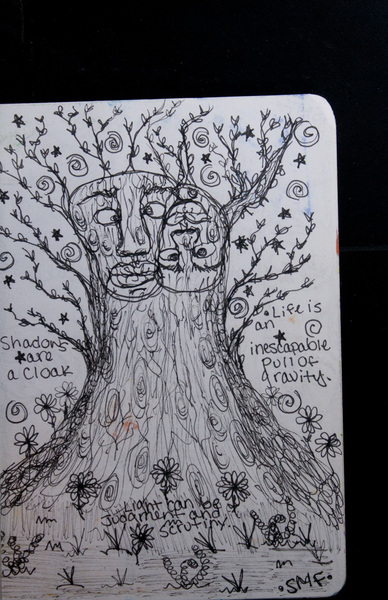 Shadows
are
a cloak
Life is
an
inescapable
Pull of
gravity.
Light can be
Judgment and
scrutiny.
SMF